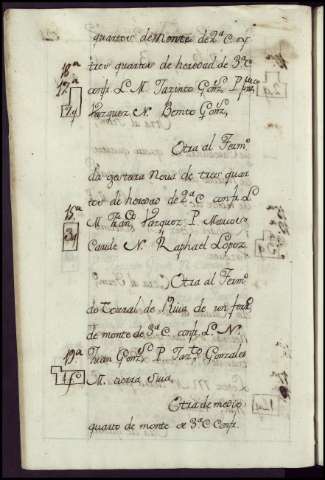 quartos de Monte de 2ª C y
tres quartos de heredad de 3ª C
confi L M Jazinto Gonz. P
Vazquez N. Benito Gonz.
Otra al Term.
da gestara Nova de tres quar
tos de heredad de 2ª C confi L
M Vazquez P Marcos
Caride N. Raphael Lopez
Otra al Term.
do Torral de Ruia de un ferr.
de monte de 3ª C confi L N.
Juan Gonz. P. Jaz.to Gonzales
M. cierra Sua,
Otra de medio
quarto de monte de 3ª C Confi.
18ª
17ª
15ª
3q
19ª